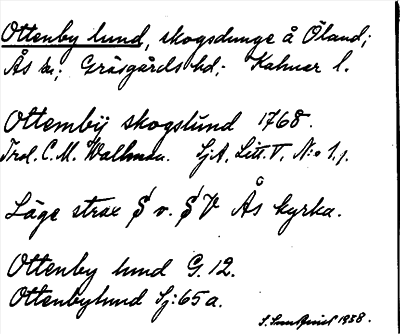 Ottenby lund, skogsdunge å Öland;
Ås sn; Gräsgårds hd; Kalmar l.
Ottembÿ skogslund 1768.
Trol. C. M. Wallman. SjA, Litt. V, N:o 1.
Läge strax S v. Ås kyrka.
Ottenby lund G. 12.
Ottenbylund Sj: 65 a.
1938.